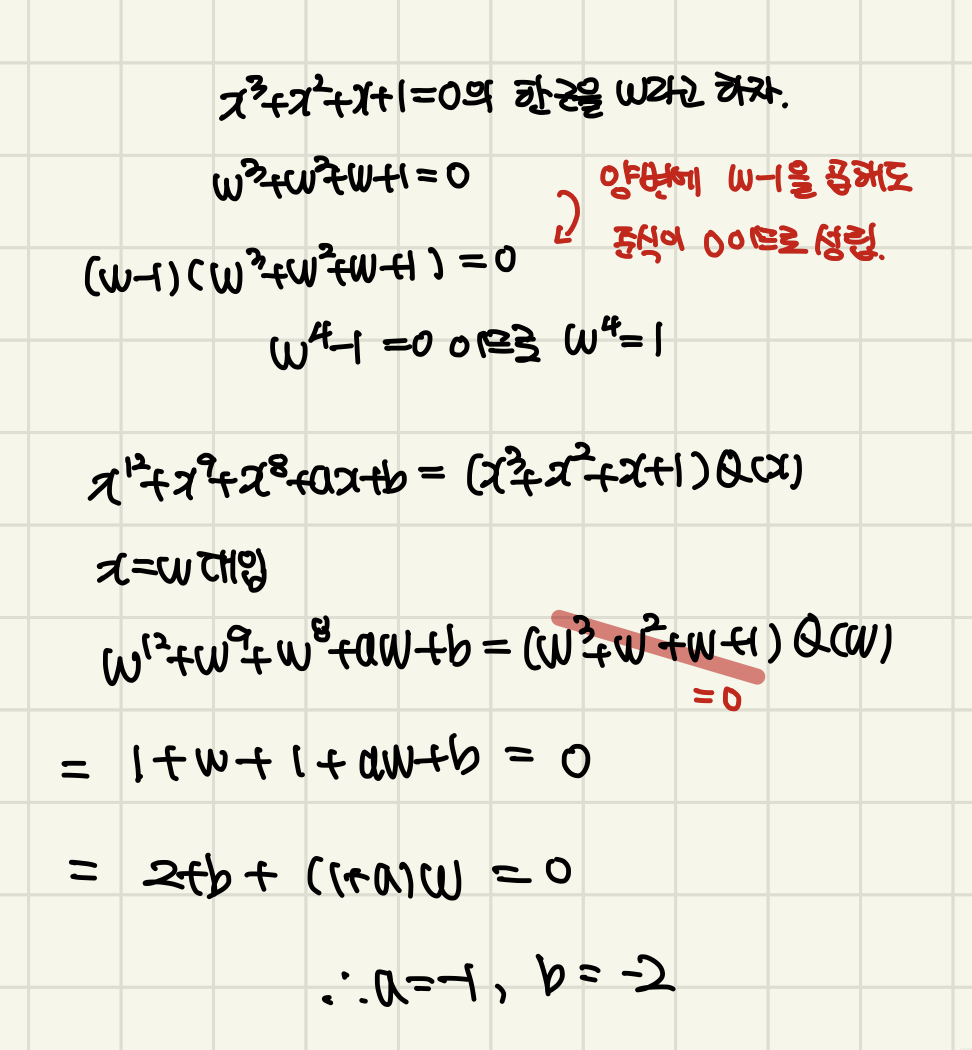 x³+x²+x+1=0의 한근을 w라고 하자.
w³+w²+w+1=0
양변에 w-1을 곱해도
준식이 0이므로 성립.
(w-1)(w³+w²+w+1)=0
w⁴-1=0 이므로 w⁴=1
x¹²+x⁹+x⁸+ax+b=(x³+x²+x+1)Q(x)
x=w 대입
w¹²+w⁹+w⁸+aw+b=(w³+w²+w+1)Q(w)
=0
= 1+w+1+aw+b = 0
= 2+b+(1+a)w = 0
∴a=-1, b=-2